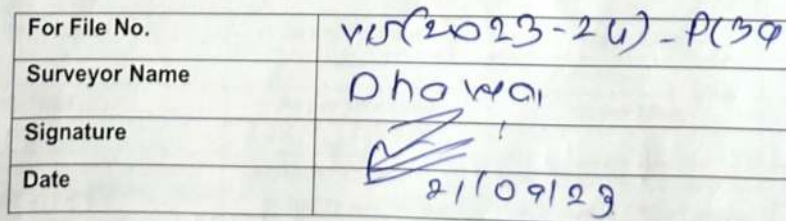 For File No. VIS(2023-24)-P(39
Surveyor Name Dhawal
Signature
Date 21/09/23